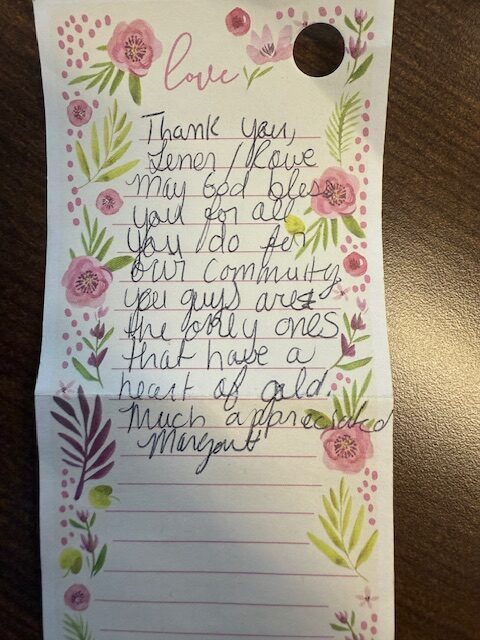 love
Thank you,
Lener / Rowe
May God bless
you for all
you do for
our commuity,
you guys are
the only ones
that have a
heart of gold.
Much appreciated